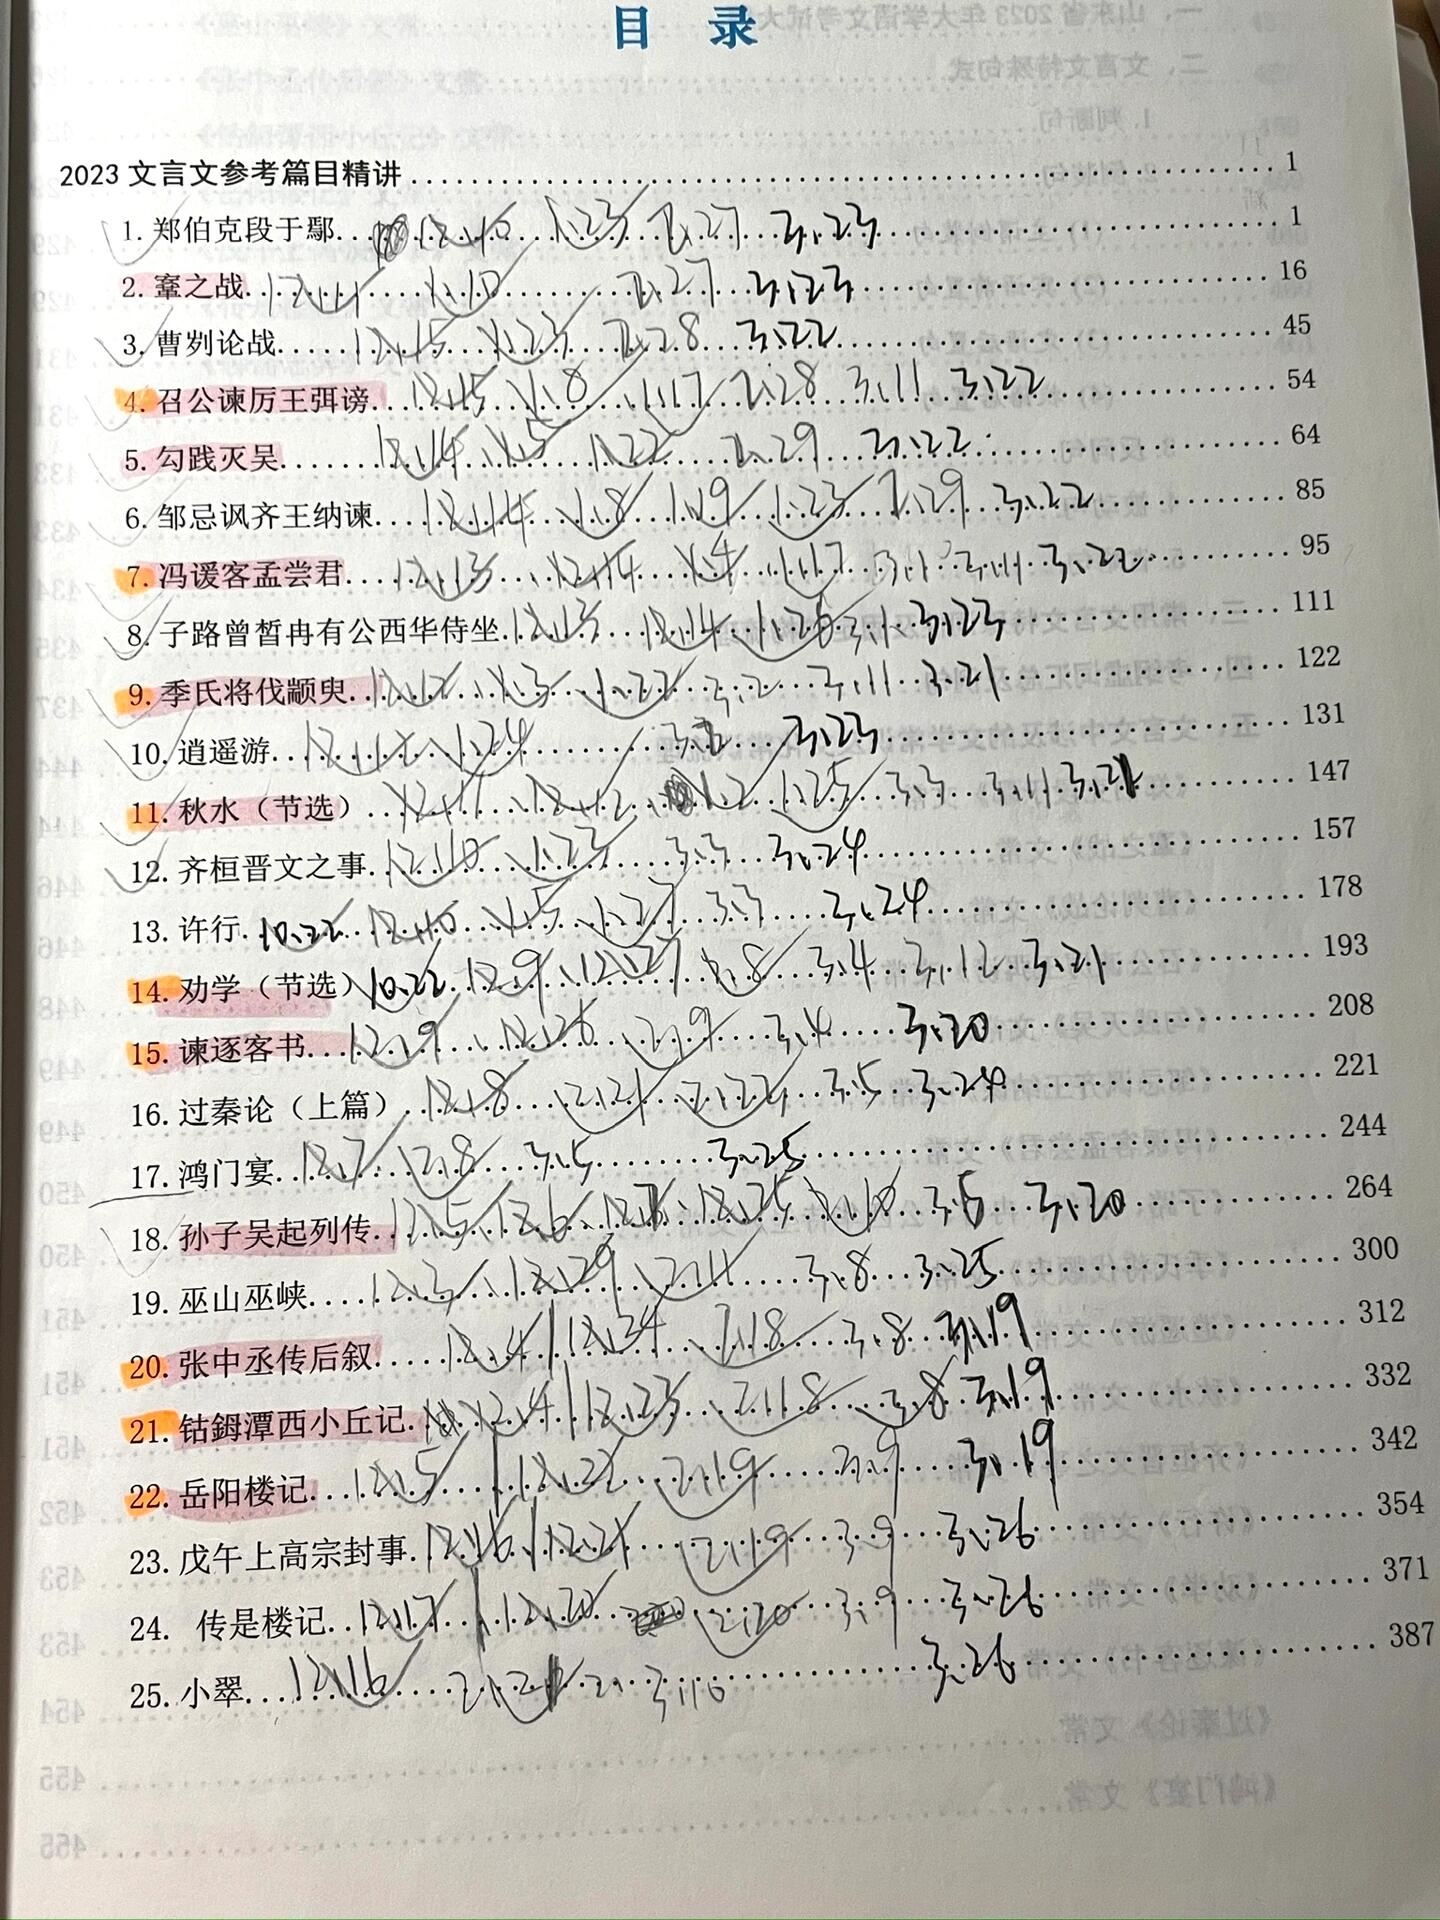 目 录
2023 文言文参考篇目精讲 1
1. 郑伯克段于鄢 12.10 1.23 2.27 3.23 1
2. 鞌之战 12.11 1.10 2.27 3.23 16
3. 曹刿论战 12.15 1.23 2.28 3.22 45
4. 召公谏厉王弭谤 12.15 1.8 1.17 2.28 3.11 3.22 54
5. 勾践灭吴 12.14 1.5 1.22 2.29 3.22 64
6. 邹忌讽齐王纳谏 12.14 1.8 1.19 1.23 2.29 3.22 85
7. 冯谖客孟尝君 12.13 12.14 1.4 1.17 3.1 3.11 3.22 95
8. 子路曾皙冉有公西华侍坐 12.13 12.14 1.26 3.1 3.23 111
9. 季氏将伐颛臾 12.12 1.3 1.22 3.2 3.11 3.21 122
10. 逍遥游 12.12 1.24 3.2 3.23 131
11. 秋水（节选） 12.11 12.12 1.2 1.25 3.3 3.11 3.21 147
12. 齐桓晋文之事 12.10 1.23 3.3 3.24 157
13. 许行 10.22 12.10 1.5 1.27 3.3 3.24 178
14. 劝学（节选） 10.22 12.9 12.27 1.8 3.4 3.12 3.21 193
15. 谏逐客书 12.9 12.26 2.9 3.4 3.20 208
16. 过秦论（上篇） 12.8 2.21 2.22 3.5 3.24 221
17. 鸿门宴 12.7 2.8 3.5 3.25 244
18. 孙子吴起列传 12.5 12.6 12.25 2.10 3.5 3.20 264
19. 巫山巫峡 12.3 12.29 2.11 3.8 3.25 300
20. 张中丞传后叙 12.4 12.24 2.18 3.8 3.19 312
21. 钴鉧潭西小丘记 12.4 12.23 2.18 3.8 3.19 332
22. 岳阳楼记 12.5 12.22 2.19 3.9 3.19 342
23. 戊午上高宗封事 12.16 12.21 2.19 3.9 3.26 354
24. 传是楼记 12.17 12.20 2.20 3.9 3.26 371
25. 小翠 12.16 2.21 3.10 3.26 387